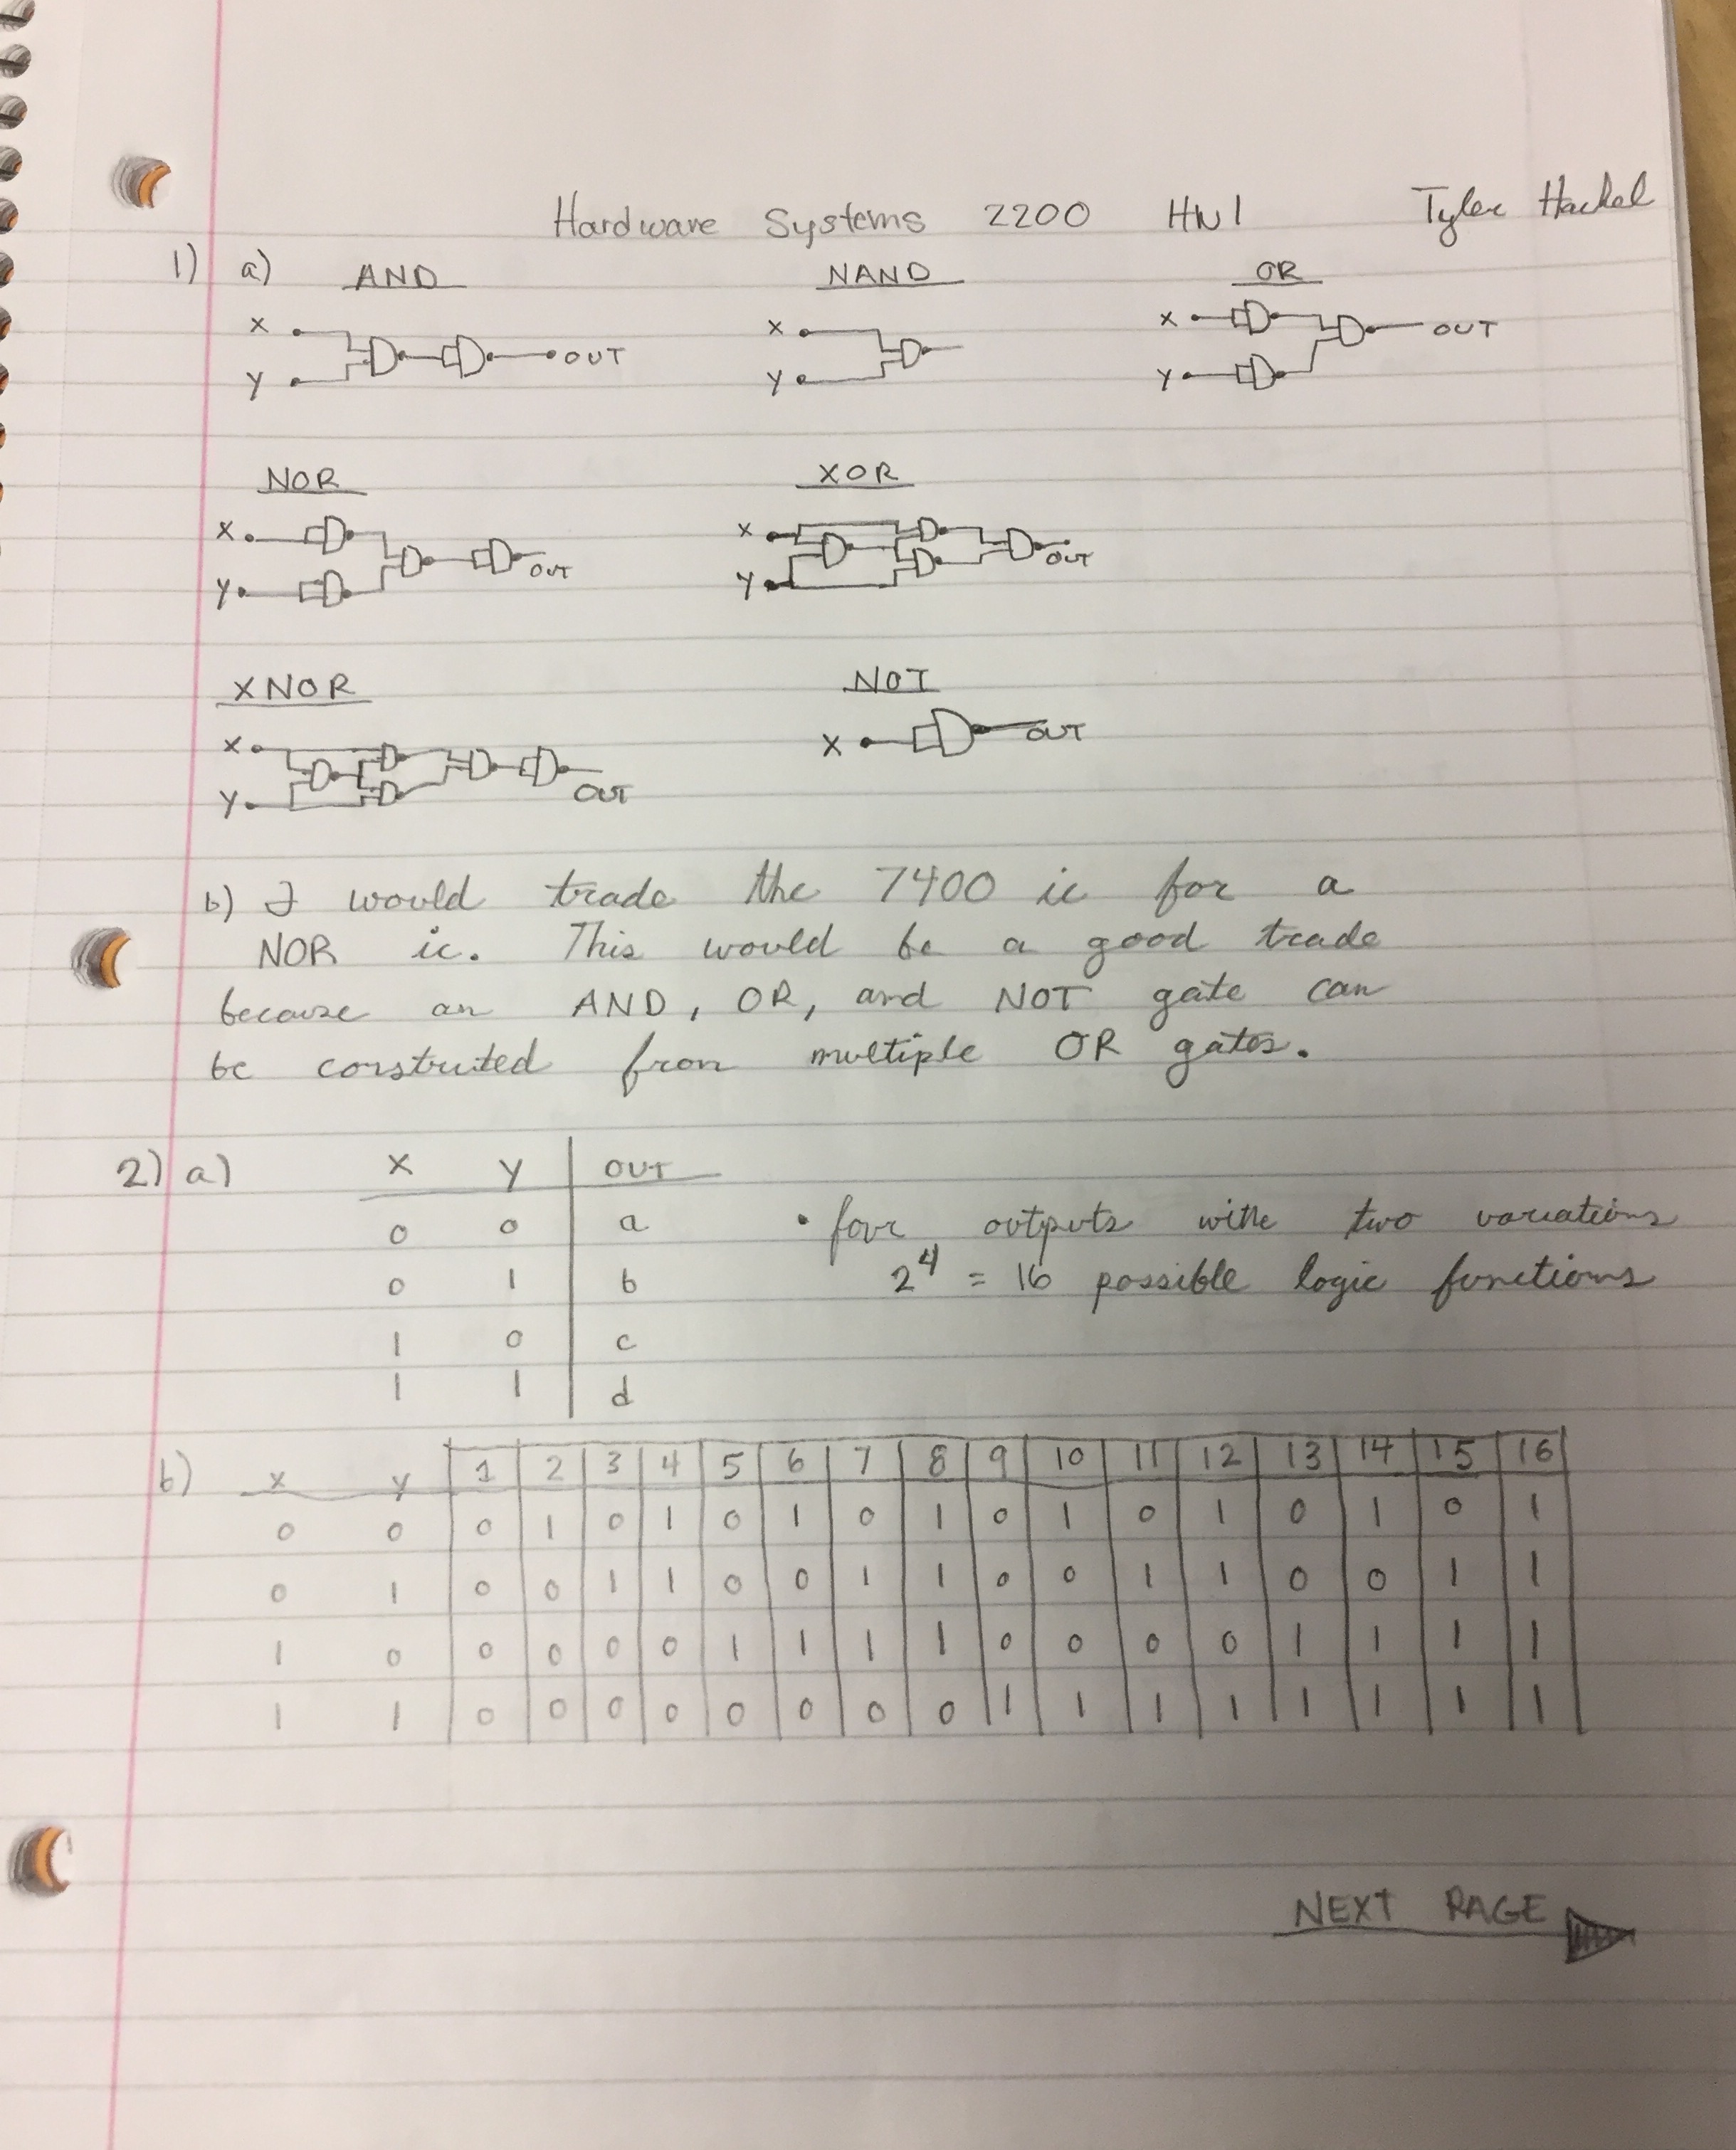 Hardware Systems 2200 HW1 Tyler Hackel
1) a) AND NAND OR
X X X
OUT OUT
Y Y Y
NOR XOR
X X
OUT OUT
Y Y
XNOR NOT
X X OUT
Y OUT
b) I would trade the 7400 ic for a
NOR ic. This would be a good trade
because an AND, OR, and NOT gate can
be constructed from multiple OR gates.
2) a) X Y OUT
0 0 a • four outputs with two variations
0 1 b 2^4 = 16 possible logic functions
1 0 c
1 1 d
b) x y 1 2 3 4 5 6 7 8 9 10 11 12 13 14 15 16
0 0 0 1 0 1 0 1 0 1 0 1 0 1 0 1 0 1
0 1 0 0 1 1 0 0 1 1 0 0 1 1 0 0 1 1
1 0 0 0 0 0 1 1 1 1 0 0 0 0 1 1 1 1
1 1 0 0 0 0 0 0 0 0 1 1 1 1 1 1 1 1
NEXT PAGE